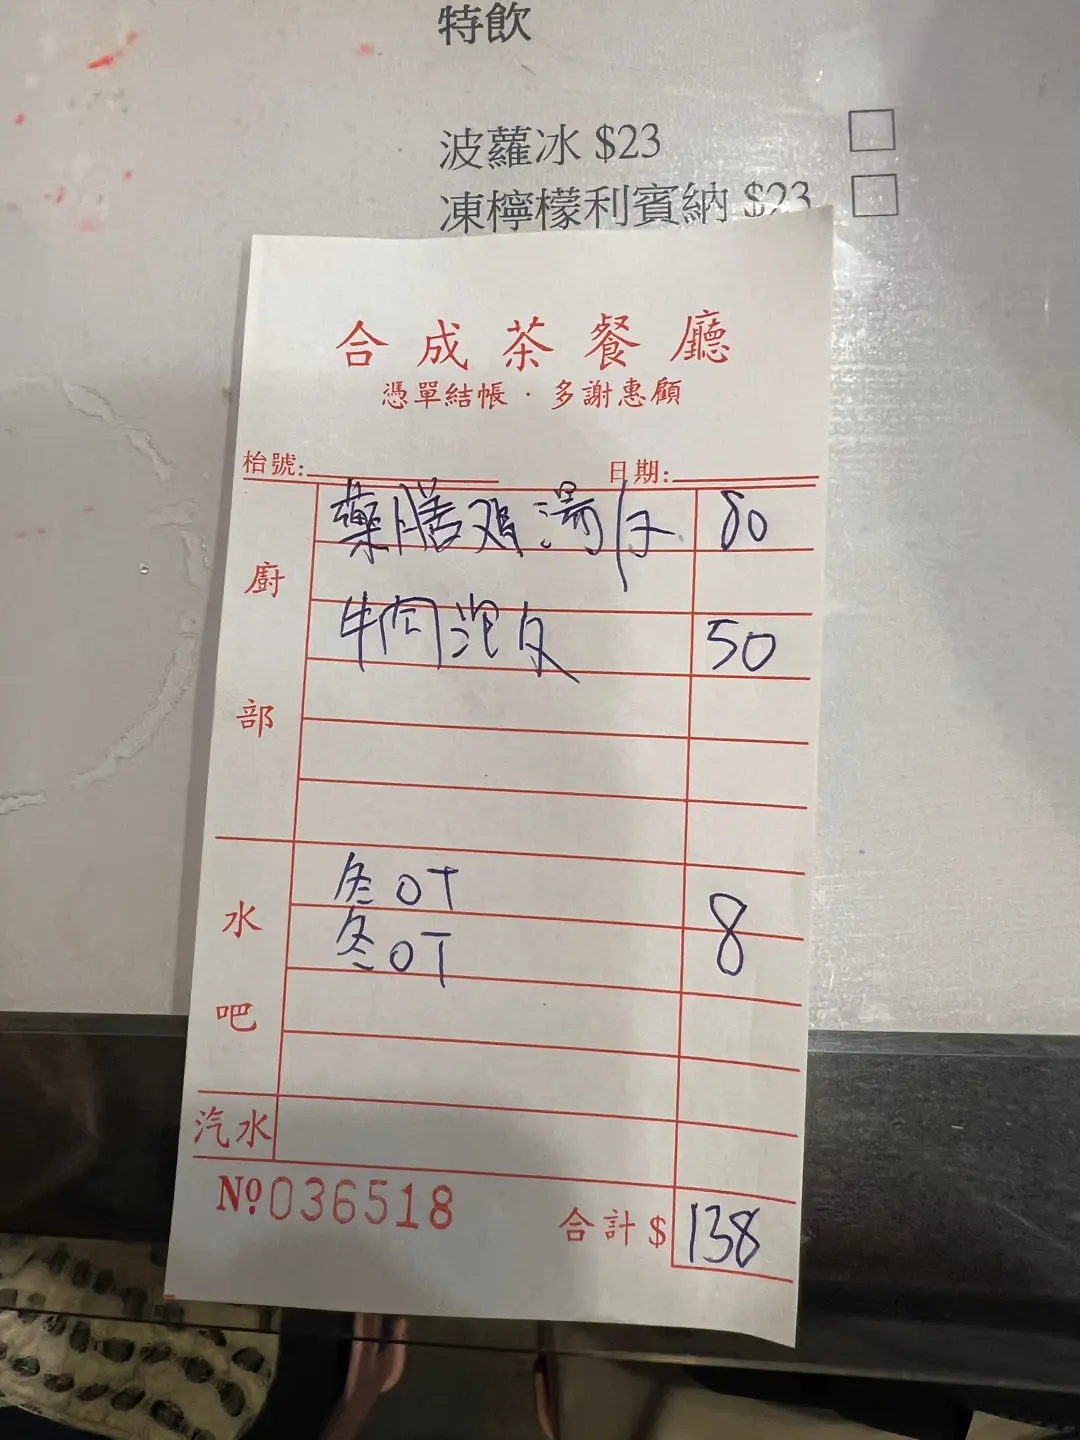 特飲
波蘿冰 $23
凍檸檬利賓納 $23
合成茶餐廳
憑單結帳·多謝惠顧
枱號: 日期:
藥膳雞湯 80
廚
牛 50
部
冬OT
水
冬OT 8
吧
汽水
Nº 036518
合計$ 138